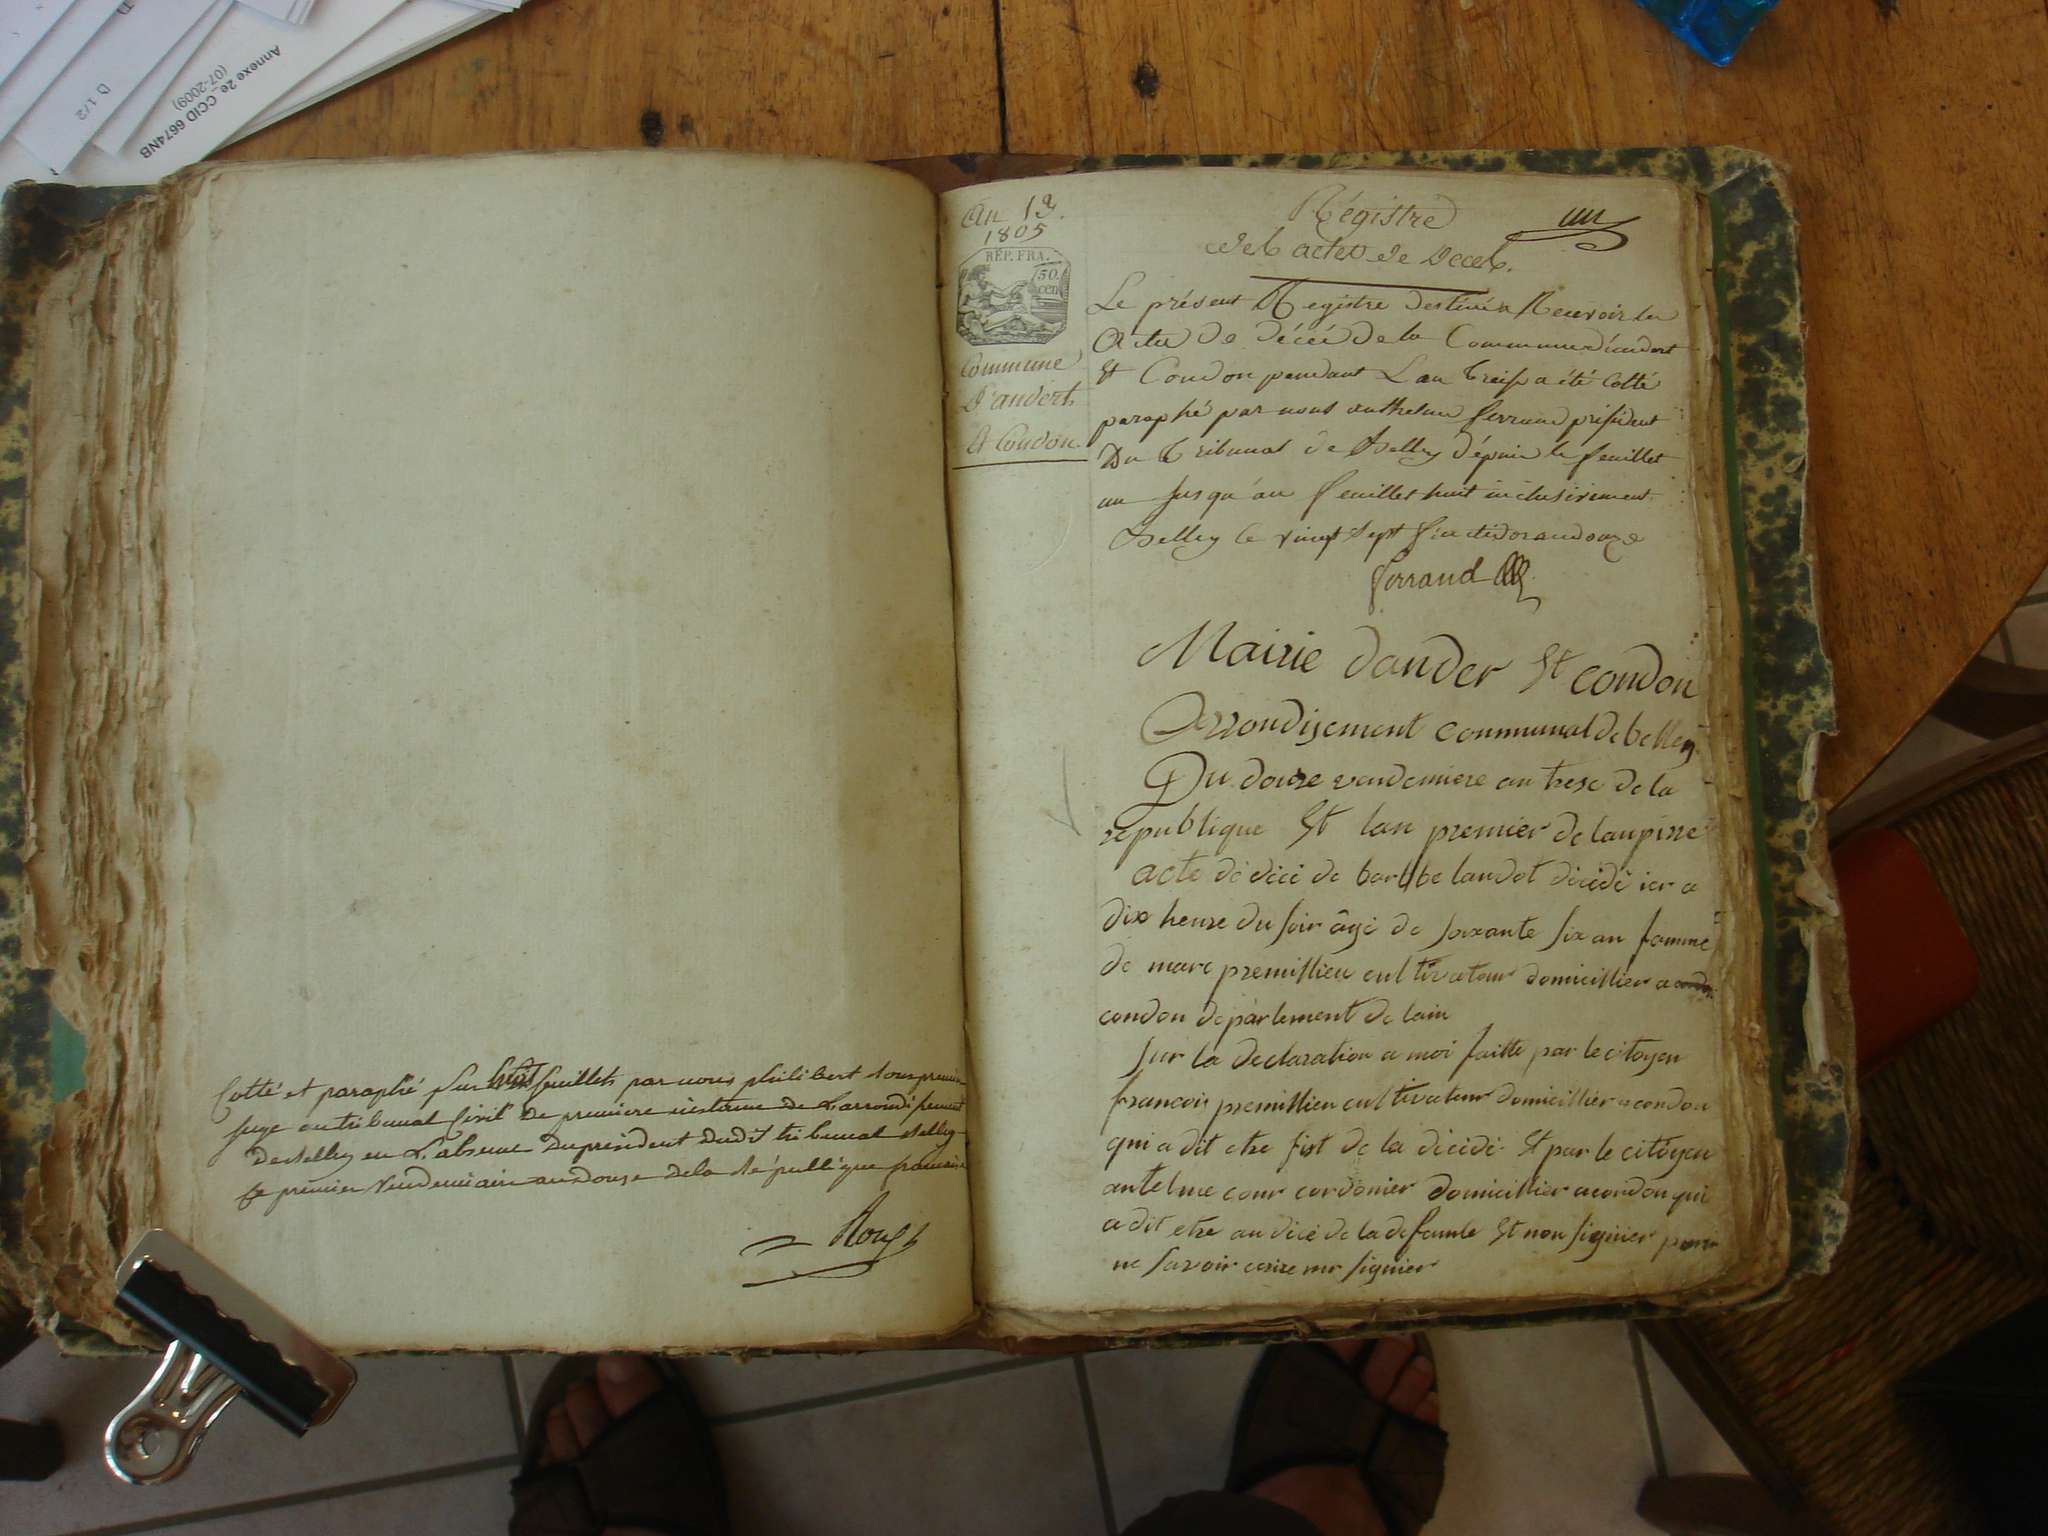 Annexe 2e CCID 6674NB
(07-2009)
D 1/2
Cotté et paraphé sur huit feuillets par nous philibert Roux premier
juge au tribunal Civil de premiere instance de Larrondissement
de Belley en L'absence du president dudit tribunal Belley
le premier Vendemiaire an douze de la République francaise
Roux
An 13.
1805
RÉP. FRA.
50
cen
Commune
D'andert
et Condon
Régistre
un
des actes de Deces.
Le présent Registre destiné a Recevoir les
Actes de décés de la Commune d'andert
Et Condon pendant L'an treise a été Cotté
paraphé par nous anthelme ferrand président
Du Tribunal de Belley dépuis le feuillet
un Jusqu'au feuillet huit inclusivement.
Belley le vingt sept fructidor an douze
ferrand
Mairie dander Et condon
Arrondisement communal de belley
Du douze vendemiere an trese de la
republique Et lan premier de lanpire
acte de déci de barbbe landot décédé ier a
dix heure du soir âgé de soixante six an famme
de marc premillieu cultivateur domicillier a
condon département de lain
sur la declaration a moi faitte par le citoyen
francois premillieu cultivateur domicillier a condon
qui a dit etre fist de la décédé Et par le citoyen
antelme cour cordonier domicillier a condon qui
a dit etre au décé de la defamle Et non signier pour
ne savoir ecrire nir signier